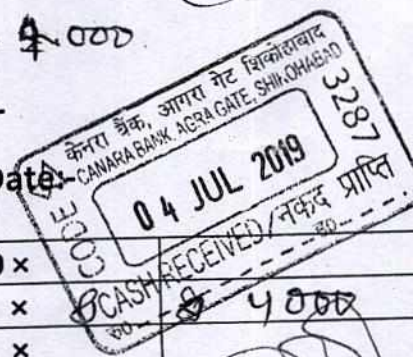 4000
केनरा बैंक, आगरा गेट शिकोहाबाद
CANARA BANK, AGRA GATE, SHIKOHABAD
Date:-
CODE
04 JUL 2019
3287
CASH RECEIVED/नकद प्राप्ति
रु0
रु0
×
× 4000
×